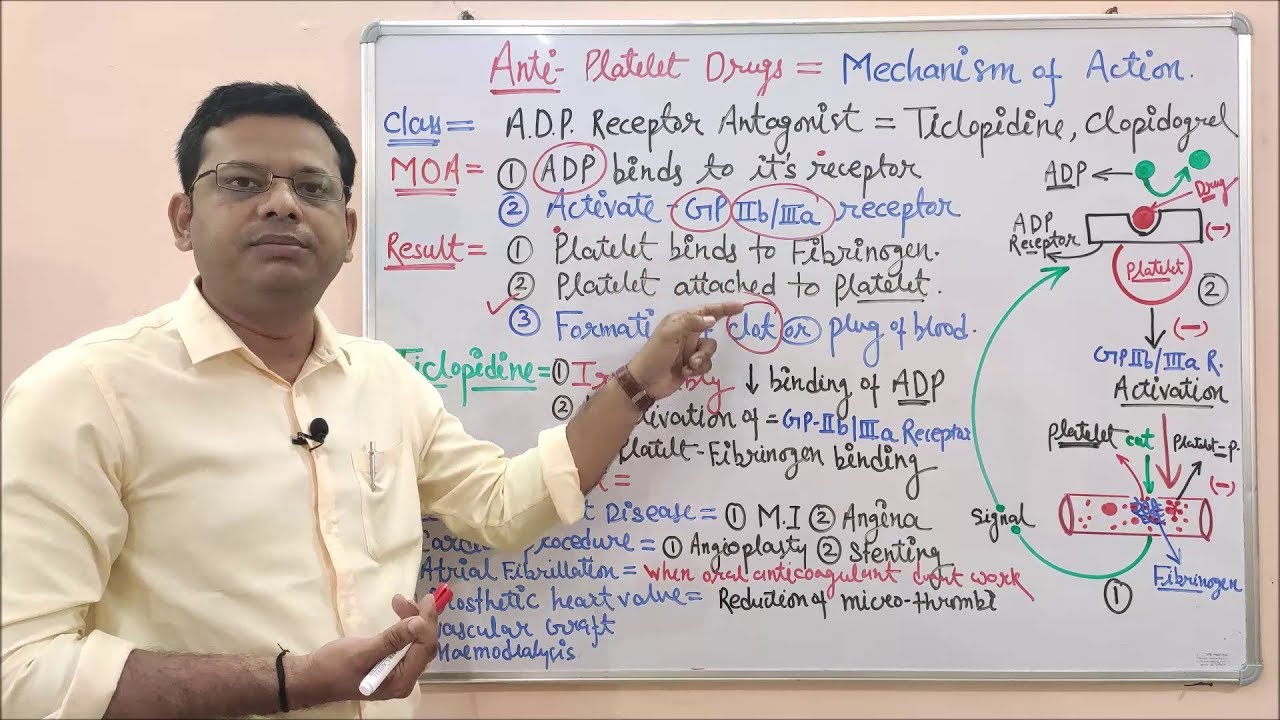 Anti- Platelet Drugs = Mechanism of Action.
Class = A.D.P. Receptor Antagonist = Ticlopidine, Clopidogrel
MOA = ① ADP binds to it's receptor
② Activate - GP IIb/IIIa receptor
Result = ① Platelet binds to Fibrinogen.
② Platelet attached to platelet.
③ Formati clot or plug of blood.
Ticlopidine = ① Ir bly ↓ binding of ADP
② tivation of = GP-IIb/IIIa Receptor
Platelt-Fibrinogen binding
=
Disease = ① M.I ② Angina
procedure = ① Angioplasty ② Stenting
Atrial Fibrillation = when oral anticoagulant don't work
rosthetic heart valve = Reduction of micro-thrombi
vascular Graft
Haemodialycis
ADP
Drug
ADP Receptor
(-)
Platelet
②
(-)
GPIIb/IIIa R.
Activation
platelet
cat
Platelet = P.
(-)
Signal
Fibrinogen
①